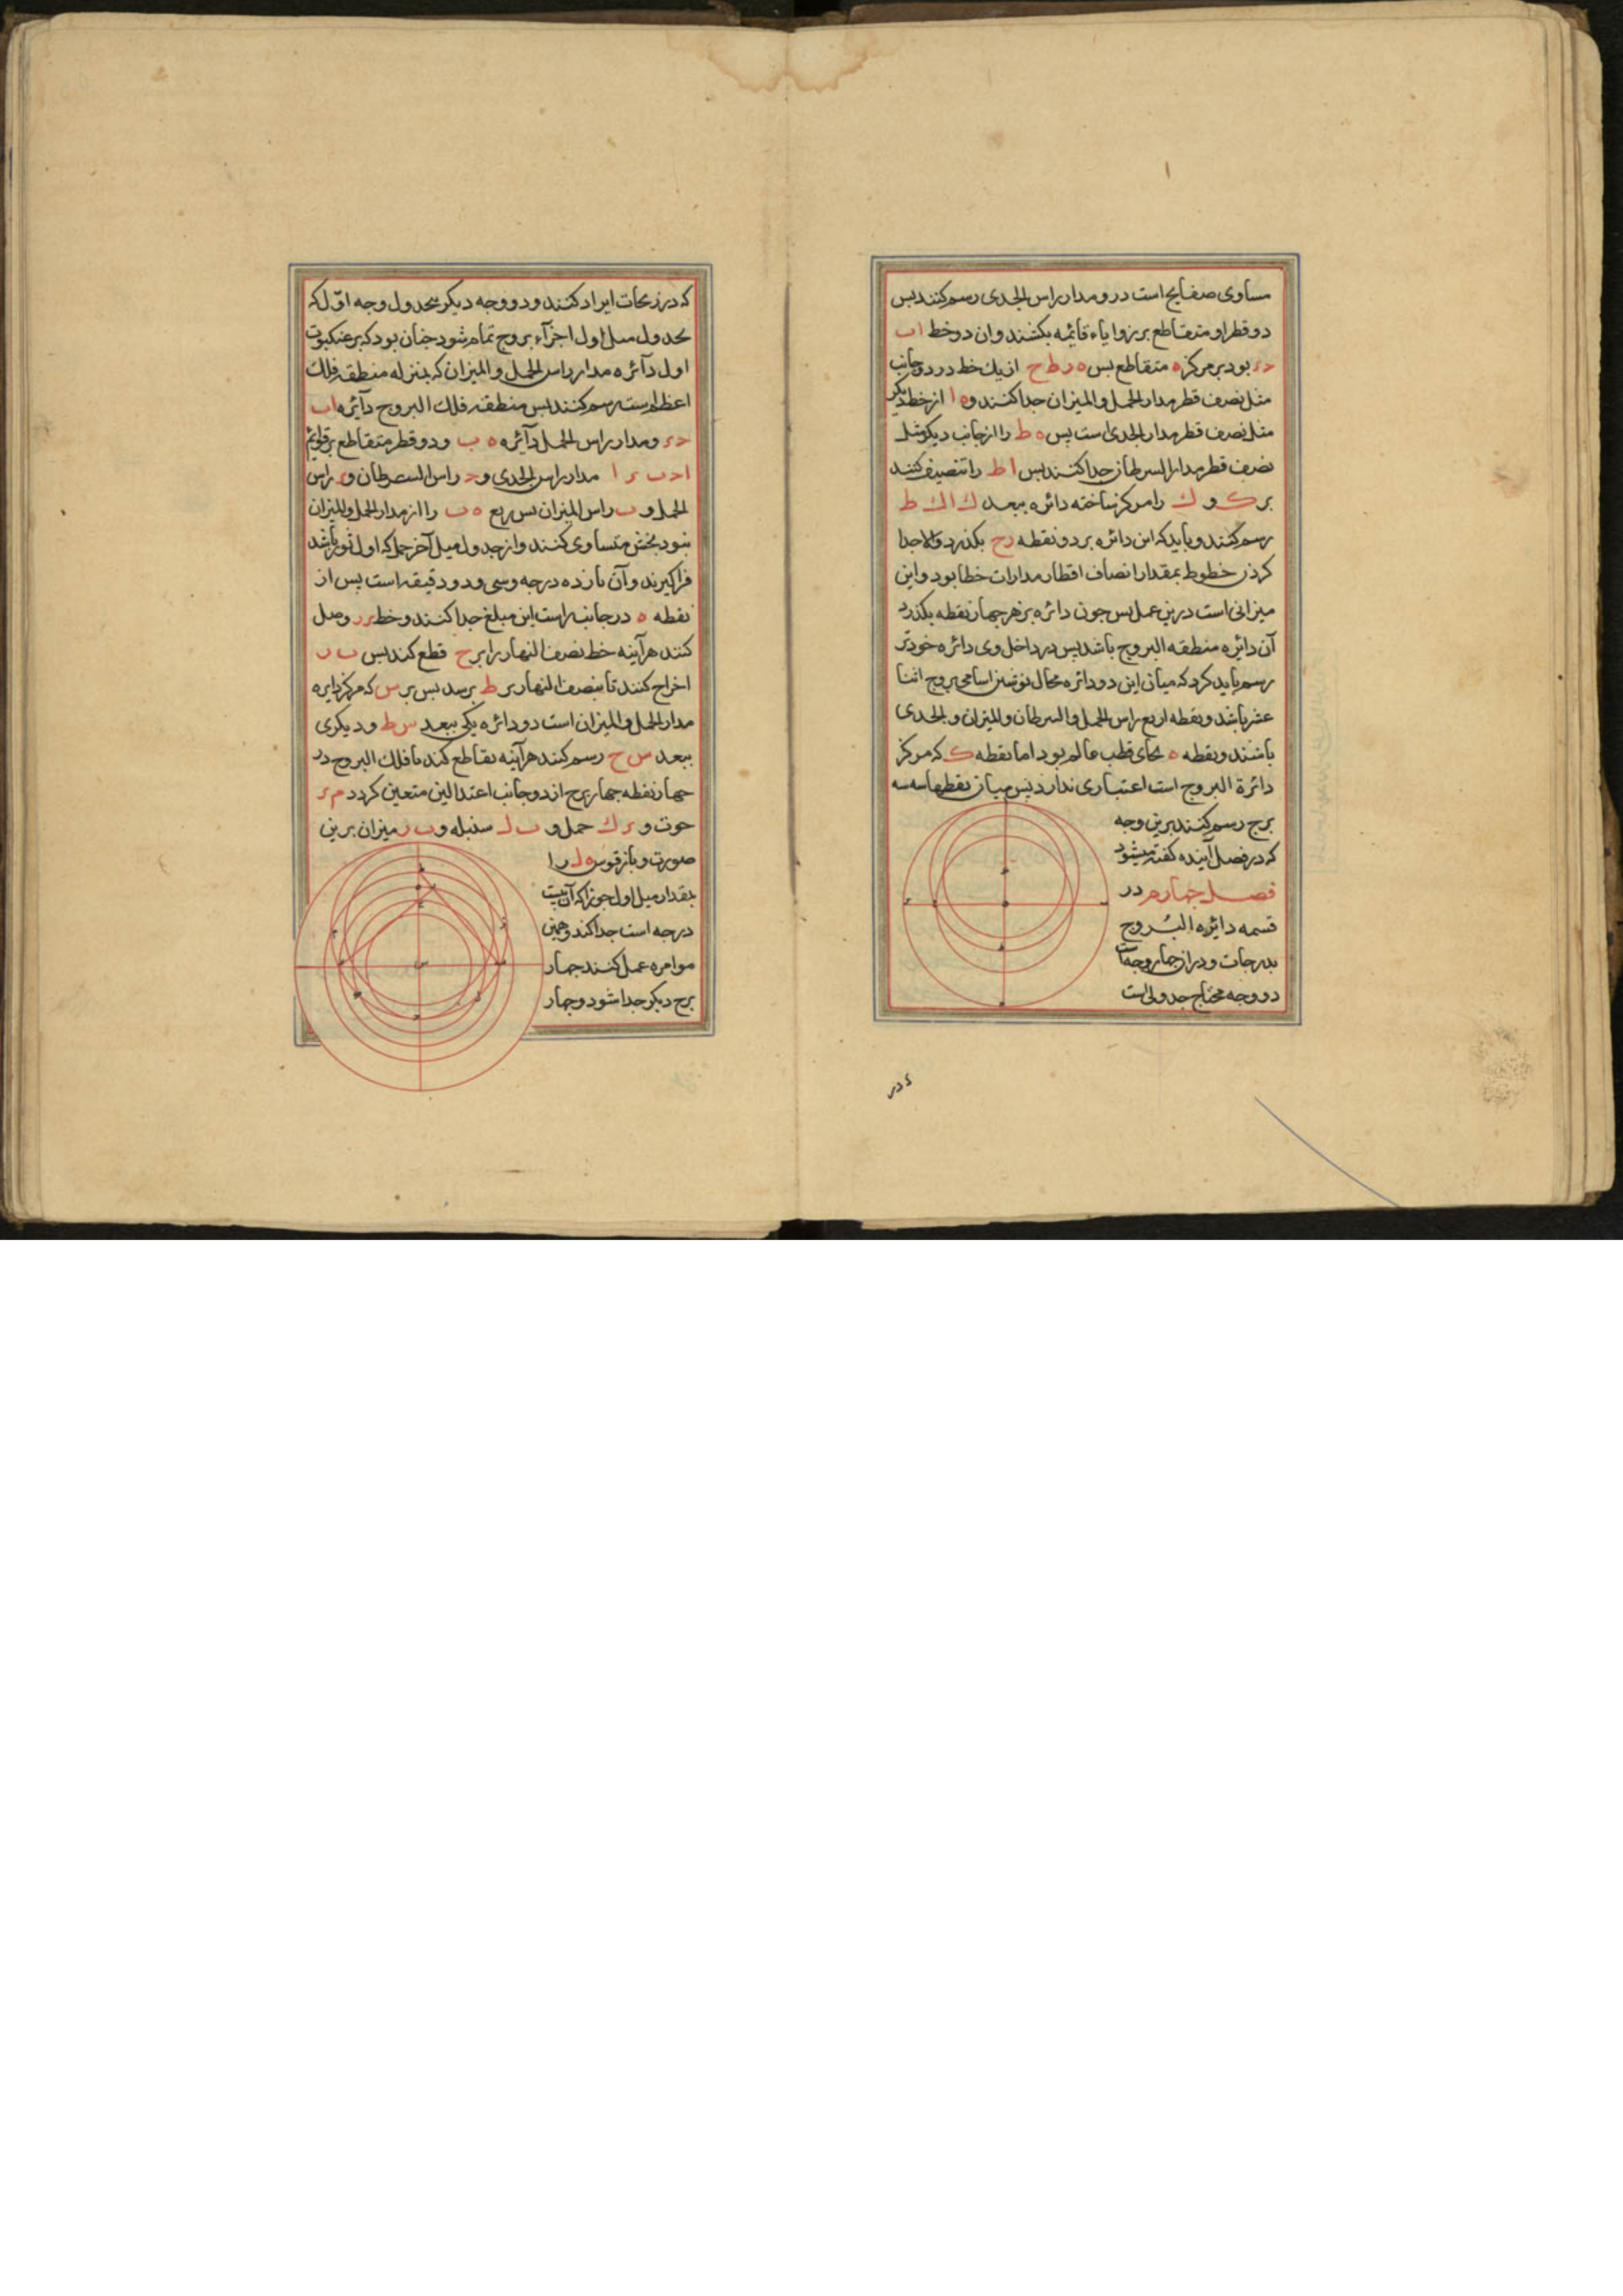 مساوی صفایح است در و مدار راس الجدی رسم کنند بس
دو قطر او متقاطع بر زوایاء قائمه بکشند و ان دو خط ا ب
بود بر مرکز ه متقاطع بس ه ر ط ح از یك خط در دو جانب
مثل نصف قطر مدار الحمل و المیزان جدا کنند و ه ا از خط دیکر
مثل نصف قطر مدار الجدی است بس ه ط را از جانب دیکر مثل
نصف قطر مدار السرطان جدا کنند بس ا ط را تنصیف کنند
بر ک و ك را مرکز ساخته دائره ببعد ك ا ك ط
رسم کنند و باید که این دائره بر دو نقطه ر ح بکذرد والا جدا
کردن خطوط بمقدار انصاف اقطار مدارات خطا بود و این
میزانی است درین عمل بس جون دائره بر هر جهار نقطه بکذرد
آن دائره منطقه البروج باشد بس در داخل وی دائره خودتر
رسم باید کرد که میان این دو دائره مجال نوشتن اسامی بروج اثنا
عشر باشد و نقطه اربع راس الحمل و السرطان و المیزان و الجدی
باشند و نقطه ه بجای قطب عالم بود اما نقطه ک که مرکز
دائرة البروج است اعتباری ندارد بس میان نقطها سه سه
برج رسم کنند برین وجه
که در فصل آینده کفته میشود
فصل جهارم در
قسمه دائره البروج
بدرجات و در آن جهار وجه است
دو وجه محتاج جدولی است
که در زیجات ایراد کنند و دو وجه دیکر بجدول وجه اول که
بجدول میل اول اجزآء بروج تمام شود جنان بود که بر عنکبوت
اول دآئره مدار راس الحمل و المیزان که بمنزله منطقه فلك
اعظم است رسم کنند بس منطقه فلك البروج دآئره ا ب
و مدار راس الحمل دآئره ه ب و دو قطر متقاطع بر قوائم
مدار راس الجدی و ح راس السرطان و ر راس
الحمل و ب راس المیزان بس ربع ه ب را از مدار الحمل و المیزان
بنود بخش متساوی کنند و از جدول میل آخر حمل که اول ثور باشد
فراکیرند و آن یازده درجه و سی و دو دقیقه است بس از
نقطه ه در جانب راست این مبلغ جدا کنند و خط ر ر وصل
کنند هرآینه خط نصف النهار را بر ح قطع کند بس ب ر
اخراج کنند تا بنصف النهار بر ط برسد بس بر س که مرکز دایره
مدار الحمل و المیزان است دو دائره یکی ببعد س ط و دیکری
ببعد س ح رسم کنند هرآینه تقاطع کند با فلك البروج در
جهار نقطه جهار برج از دو جانب اعتدالین متعین کردد م ر
حوت و ر ك حمل و ب ل سنبله و ب ر میزان برین
صورت و باز قوس ه ل را
بمقدار میل اول جوزا که آن بیست
درجه است جدا کند و همین
موامره عمل کنند جهار
برج دیکر جدا شود و جهار